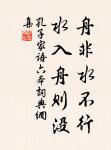 舟非水不行
水入舟则没
孔子家语六本词典网
集